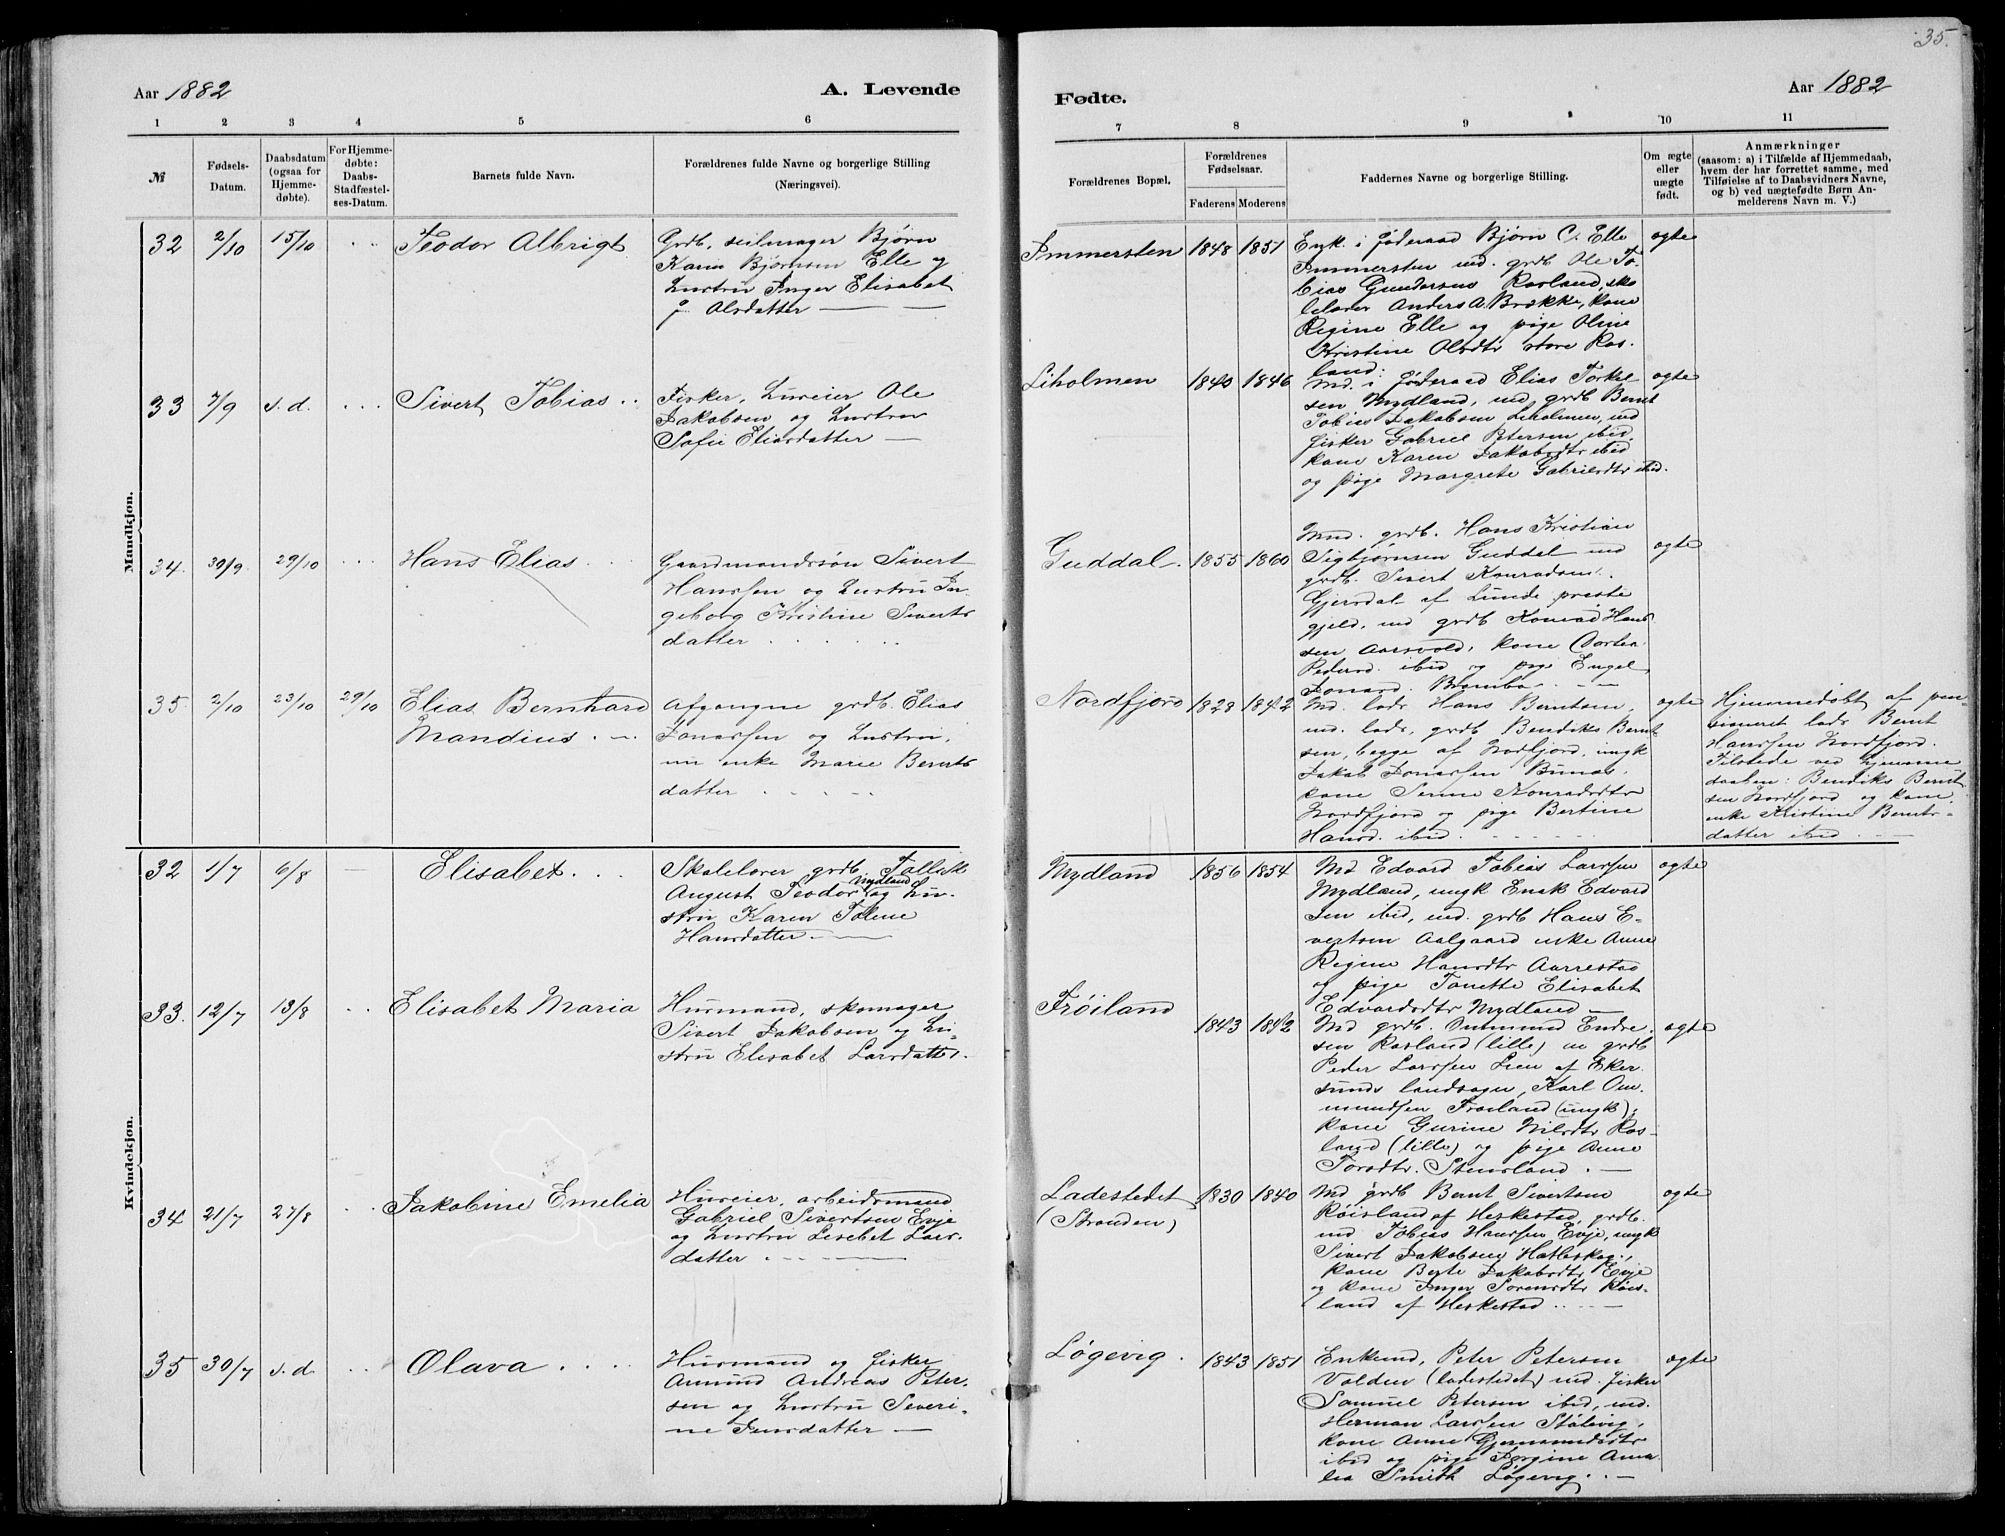 35.
Aar 1882
A. Levende
Fødte.
Aar 1882
1 2 3 4 5 6
7 8 9 10 11
№
Fødsels-
Datum.
Daabsdatum
(ogsaa for
Hjemme-
døbte).
For Hjemme-
døbte:
Daabs-
Stadfæstel-
ses-Datum.
Barnets fulde Navn.
Forældrenes fulde Navne og borgerlige Stilling
(Næringsvei).
Forældrenes Bopæl.
Forældrenes
Fødselsaar.
Faderens Moderens
Faddernes Navne og borgerlige Stilling.
Om ægte
eller
uægte
født.
Anmærkninger
(saasom: a) i Tilfælde af Hjemmedaab,
hvem der har forrettet samme, med
Tilføielse af to Daabsvidners Navne,
og b) ved uægtefødte Børn An-
melderens Navn m. V.)
Mandkjøn.
32 2/10 15/10 Teodor Albrigt
Grdb. seilmager Bjørn
Karin Bjørnsen Elle og
hustru Inger Elisabet
Olsdatter
Immersten 1848 1851
Enk. i føderaad Bjørn C. Elle
Immersten md. grdb Ole To
bias Gundersens Rosland, sko
lelærer Anders A Brække, kone
Regine Elle og pige Oline
Kristine Olsdtr store Ros-
land.
ægte
33 7/9 s. d. Sivert Tobias
Fisker, huseier Ole
Jakobsen og hustru
Sofie Eliasdatter
Liholmen 1840 1846
Md. i føderaad Elias Torkel
sen Mydland, md. grdb Bernt
Tobias Jakobsen Liholmen, md
fisker Gabriel Petersen ibid.
kone Karen Jakobsdtr ibid
og pige Margrete Gabrielsdtr ibid.
ægte
34. 30/9. 29/10 Hans Elias
Gaardmandssøn Sivert
Hanssen og hustru In-
geborg Kristine Siverts
datter
Guddal. 1855 1860
Md. grdb. Hans Kristian
Sigbjørnsen Guddal md
grdb. Sivert Konradsen
Gjersdal af Lunde præste
gjeld, md grdb Konrad Hans
sen Aarsvold, kone Dortea
Pedersd. ibid og pige Engel
Jonasd.
ægte
35 2/10 23/10 29/10 Elias Bernhard
Mandius
Afgangne grdb. Elias
Jonassen og hustru,
nu enke Marie Bernts
datter
Nordfjord 1828 1842
Md. lods Hans Berntsen,
md. lods, grdb Bendiks Bernt
sen, begge af Nordfjord, ungk
Jakob Jonassen Bunas.
kone Serine Konradsdtr
Nordfjord og pige Bertine
Hansd. ibid.
ægte
Hjemmedøbt af pen-
sioneret lods Bernt
Hanssen Nordfjord.
Tilstede ved hjemme
daaben: Bendiks Bernt
sen Nordfjord og kone,
enke Kristine Bernts-
datter ibid
Kvindekjøn.
32 1/7 6/8 Elisabet.
Skolelærer grdb Tallik
August Teodor Mydland og hu-
stru Karen Tolene
Hansdatter
Mydland 1856 1854
Md Edvard Tobias Larssen
Mydland, ungk Enok Edvard
sen ibid, md. grdb Hans E-
vertsen Aalgaard enke Anne
Regine Hansdtr Aarrestad
og pige Tonette Elisabet
Edvardsdtr Mydland
ægte
33. 12/7 13/8 Elisabet Maria
Husmand, skomager
Sivert Jakobsen og hu-
stru Elisabet Larsdatter.
Frøiland 1843 1852
Md grdb. Endre
sen Rosland (lille) m grdb
Peder Larssen Lien af Eker
sunds landsogn, Karl Om
mundsen Frøiland (ungk),
kone Gurine Nilsdtr Ros-
land (lille) og pige Anne
Torsdtr. Stensland
ægte
34 21/7 27/8 Jakobine Emelia
Huseier, arbeidsmand
Gabriel Sivertsen Evje
og hustru Lisebet Lars-
datter
Ladestedet
(Stranden) 1830 1840
Md grdb Bernt Sivertsen
Røisland af Heskestad, grdb.
md Tobias Hanssen Evje, ungk
Sivert Jakobsen Hatleskog,
kone Berte Jakobsdtr Evje
og kone Inger Sorensdtr Røis-
land af Heskestad
ægte
35 30/7 s. d. Olava
Husmand og fisker
Anund Andreas Peter-
sen og hustru Severi-
ne Jensdatter
Løgevig. 1843 1851
Enkemd, Peter Petersen
Volden (ladestedet) md. fisker
Samuel Petersen ibid, md.
Herman Larssen Stølevig,
kone Anne Gjermundsdtr
ibid og pige Jørgine Ama
lia Smith Løgevig
ægte